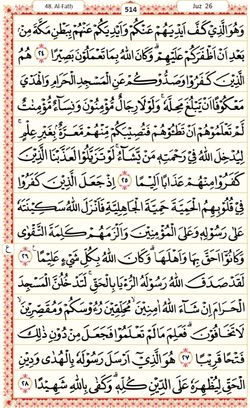 48. Al-Fath
514
Juz 26
وَهُوَ الَّذِىْ كَفَّ اَيْدِيَهُمْ عَنْكُمْ وَاَيْدِيَكُمْ عَنْهُمْ بِبَطْنِ مَكَّةَ مِنْۢ
بَعْدِ اَنْ اَظْفَرَكُمْ عَلَيْهِمْ ؕ وَكَانَ اللّٰهُ بِمَا تَعْمَلُوْنَ بَصِيْرًا ۞٢٤ هُمُ
الَّذِيْنَ كَفَرُوْا وَصَدُّوْكُمْ عَنِ الْمَسْجِدِ الْحَرَامِ وَالْهَدْىَ
مَعْكُوْفًا اَنْ يَّبْلُغَ مَحِلَّهٗ ؕ وَلَوْلَا رِجَالٌ مُّؤْمِنُوْنَ وَنِسَآءٌ مُّؤْمِنٰتٌ
لَّمْ تَعْلَمُوْهُمْ اَنْ تَطَئُوْهُمْ فَتُصِيْبَكُمْ مِّنْهُمْ مَّعَرَّةٌۢ بِغَيْرِ عِلْمٍ ۚ
لِيُدْخِلَ اللّٰهُ فِىْ رَحْمَتِهٖ مَنْ يَّشَآءُ ۚ لَوْ تَزَيَّلُوْا لَعَذَّبْنَا الَّذِيْنَ
كَفَرُوْا مِنْهُمْ عَذَابًا اَلِيْمًا ۞٢٥ اِذْ جَعَلَ الَّذِيْنَ كَفَرُوْا
فِىْ قُلُوْبِهِمُ الْحَمِيَّةَ حَمِيَّةَ الْجَاهِلِيَّةِ فَاَنْزَلَ اللّٰهُ سَكِيْنَتَهٗ
عَلٰى رَسُوْلِهٖ وَعَلَى الْمُؤْمِنِيْنَ وَاَلْزَمَهُمْ كَلِمَةَ التَّقْوٰى
وَكَانُوْۤا اَحَقَّ بِهَا وَاَهْلَهَا ؕ وَكَانَ اللّٰهُ بِكُلِّ شَىْءٍ عَلِيْمًا ۞٢٦ ع
لَقَدْ صَدَقَ اللّٰهُ رَسُوْلَهُ الرُّءْيَا بِالْحَقِّ ۚ لَتَدْخُلُنَّ الْمَسْجِدَ
الْحَرَامَ اِنْ شَآءَ اللّٰهُ اٰمِنِيْنَ ۙ مُحَلِّقِيْنَ رُءُوْسَكُمْ وَمُقَصِّرِيْنَ ۙ
لَا تَخَافُوْنَ ؕ فَعَلِمَ مَا لَمْ تَعْلَمُوْا فَجَعَلَ مِنْ دُوْنِ ذٰلِكَ
فَتْحًا قَرِيْبًا ۞٢٧ هُوَ الَّذِىْۤ اَرْسَلَ رَسُوْلَهٗ بِالْهُدٰى وَدِيْنِ
الْحَقِّ لِيُظْهِرَهٗ عَلَى الدِّيْنِ كُلِّهٖ ؕ وَكَفٰى بِاللّٰهِ شَهِيْدًا ۞٢٨